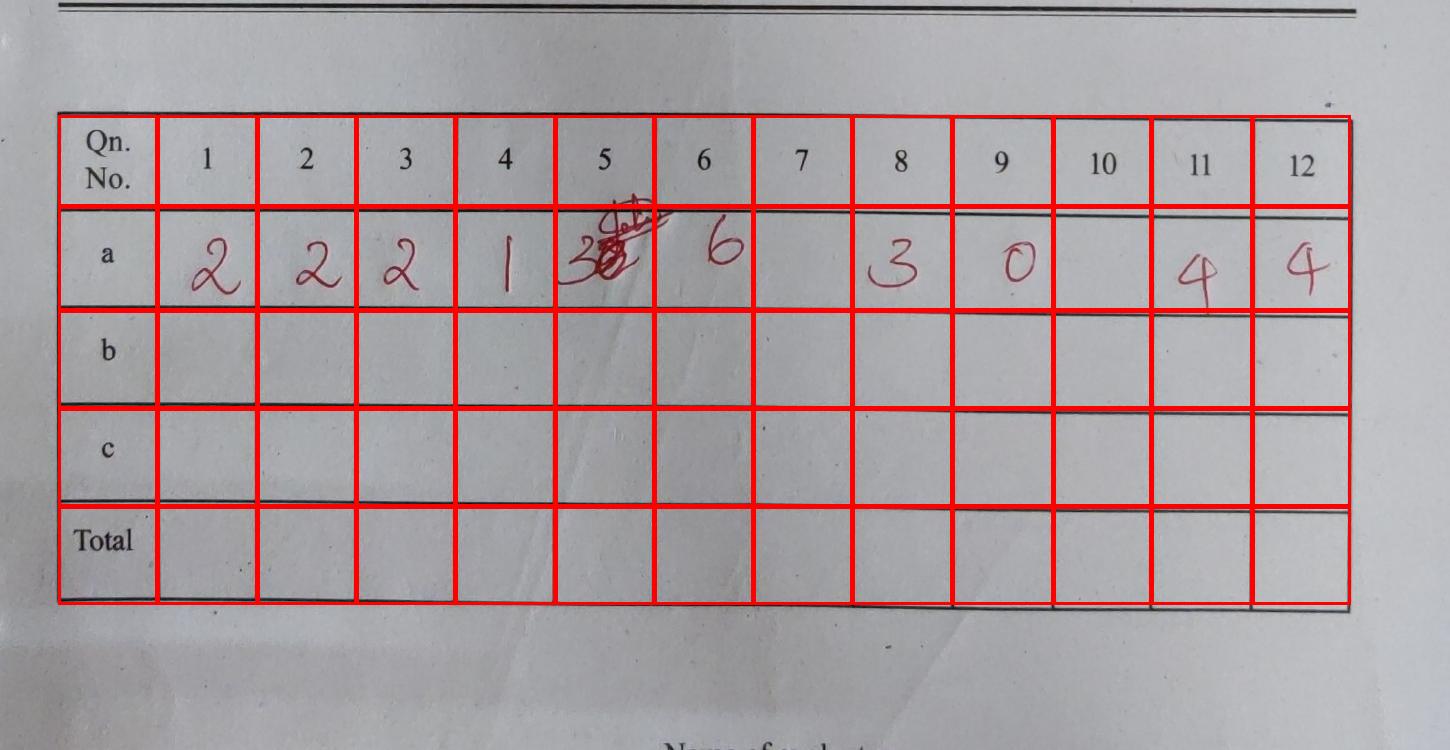 Qn. No. 1 2 3 4 5 6 7 8 9 10 11 12
a 2 2 2 1 3 6 3 0 4 4
b
c
Total